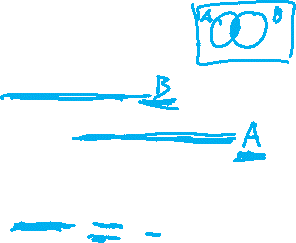 A B
B
A